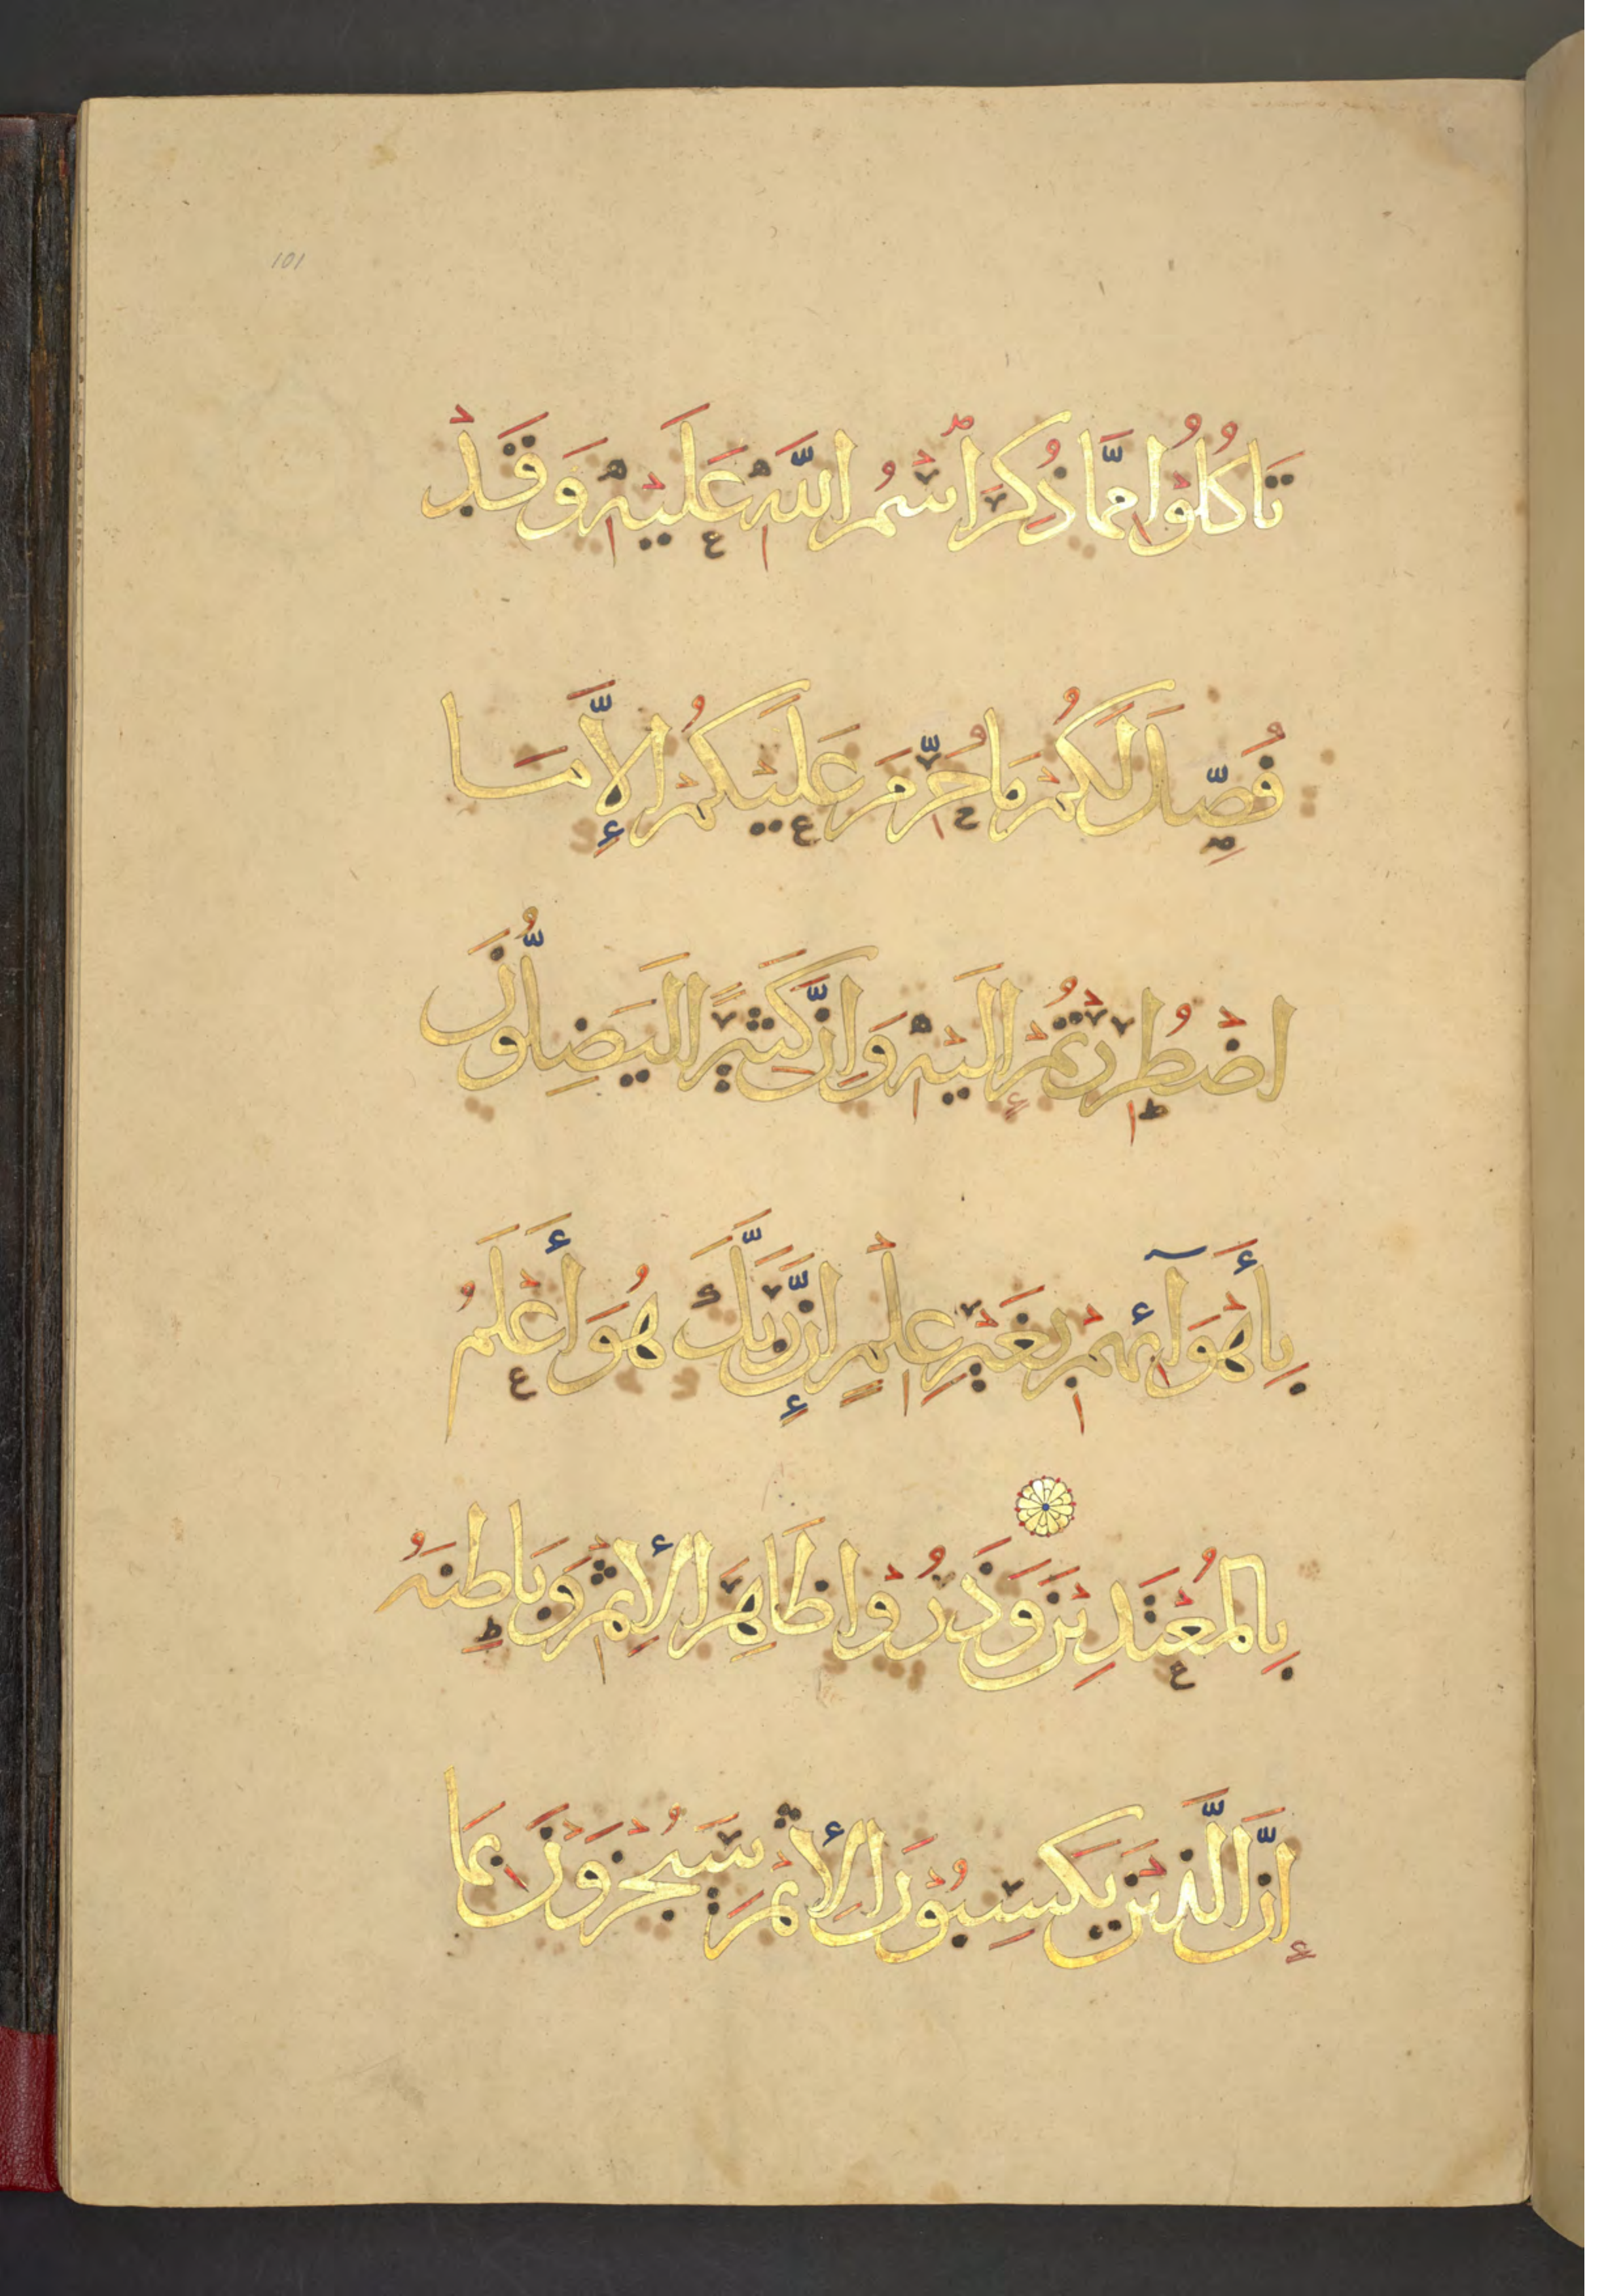 101
تَاكُلُوْا مِمَّا ذُكِرَ اسْمُ اللَّهِ عَلَيْهِ وَقَدْ
فُصِّلَ لَكُمْ مَا حُرِّمَ عَلَيْكُمْ إِلَّا مَا
اضْطُرِرْتُمْ إِلَيْهِ وَإِنَّ كَثِيرًا لَيَضِلُّونَ
بِأَهْوَآئِهِمْ بِغَيْرِ عِلْمٍ إِنَّ رَبَّكَ هُوَ أَعْلَمُ
بِالْمُعْتَدِيْنَ وَذَرُوْا ظَاهِرَ الْإِثْمِ وَبَاطِنَهُ
إِنَّ الَّذِيْنَ يَكْسِبُوْنَ الْإِثْمَ سَيُجْزَوْنَ بِمَا